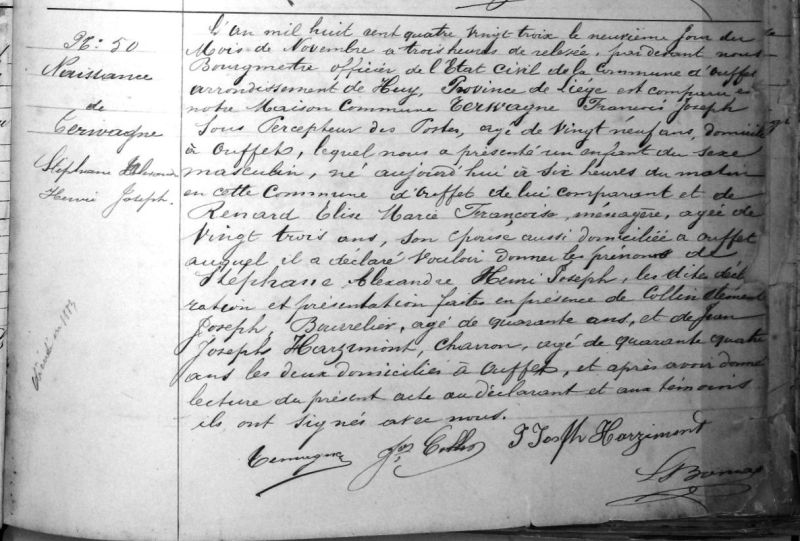 N: 50
Naissance
de
Terwagne
Stéphane Alexandre
Henri Joseph.
L'an mil huit cent quatre vingt troix le neuvième jour du
Mois de Novembre a trois heures de relevée, pardevant nous
Bourgmestre officier de l'Etat Civil de la Commune d'Ouffet
arrondissement de Huy, Province de Liége est comparu en
notre Maison Commune Terwagne François Joseph
Sous Percepteur des Postes, agé de Vingt neuf ans, domicilié
à Ouffet, lequel nous a présenté un enfant du sexe
masculin, né aujourd'hui à six heures du matin
en cette Commune d'Ouffet de lui comparant et de
Renard Elise Marie Françoise, ménagère, agée de
Vingt trois ans, son épouse aussi domiciliée a Ouffet
auquel il a déclaré vouloir donner les prénoms de
Stéphane, Alexandre Henri Joseph, les dites décla
ration et présentation faites en présence de Collin Clément
Joseph, Bourrelier, agé de quarante ans, et de Jean
Joseph Harzimont, charron, agé de quarante quatre
ans les deux domiciliés à Ouffet, et après avoir donné
lecture du présent acte au déclarant et aux témoins
ils ont signés avec nous.
Terwagne Collin J Joseph Harzimont